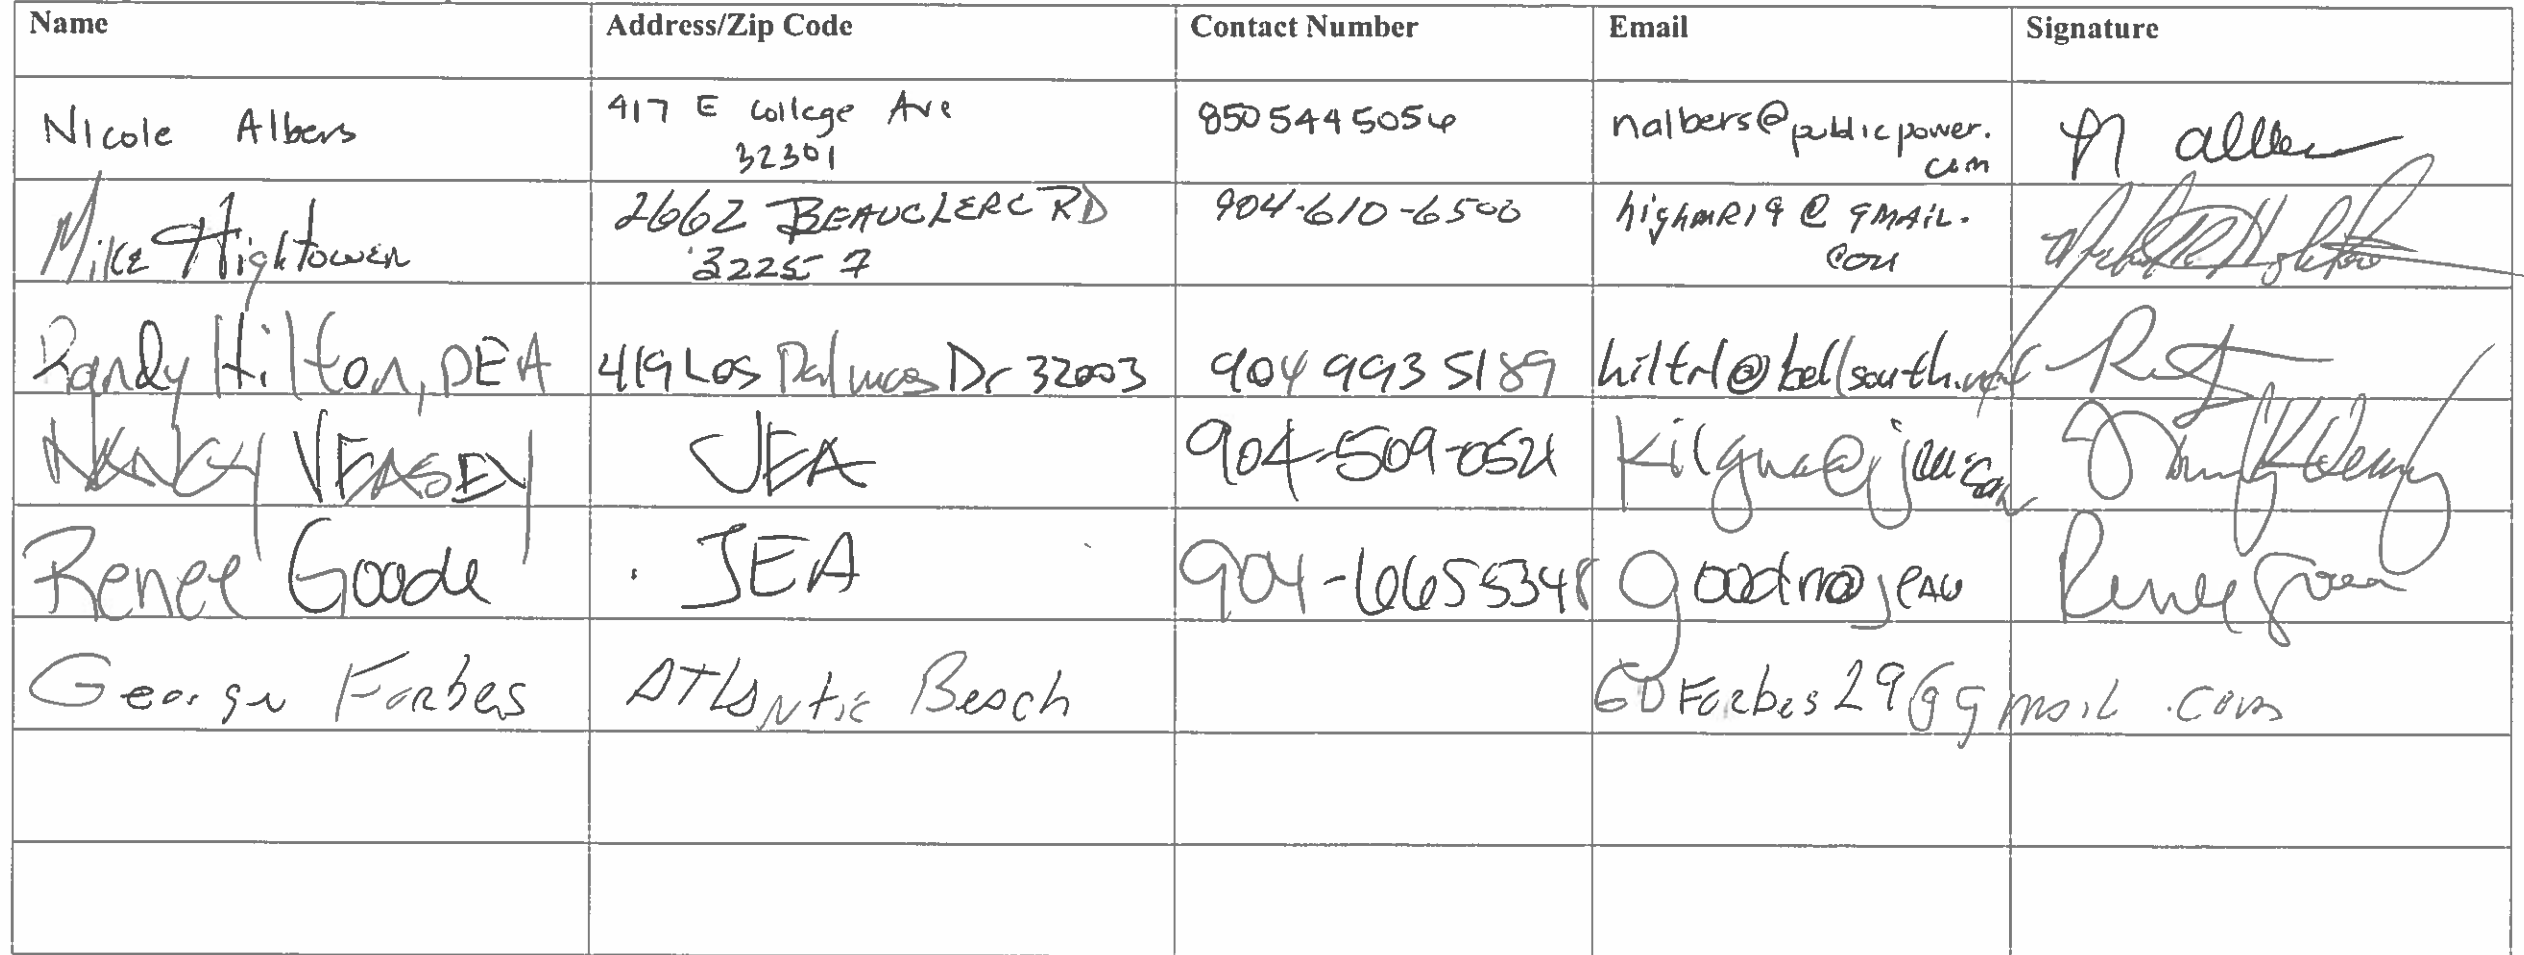 Name Address/Zip Code Contact Number Email Signature
Nicole Albers 417 E College Ave 8505445056 nalbers@publicpower.
32301 com
Mike Hightower 2662 BEAUCLERC RD 904-610-6500 highmR19@gmAiL.
32257 com
Randy Hilton, PEA 419 Los Palmas Dr 32003 904 993 5189 hiltrl@bellsouth.net
NANCY VEASEY JEA 904-509-0521
Renee Goode JEA 904-6655348
George Forbes Atlantic Beach GDForbes29@gmail.com